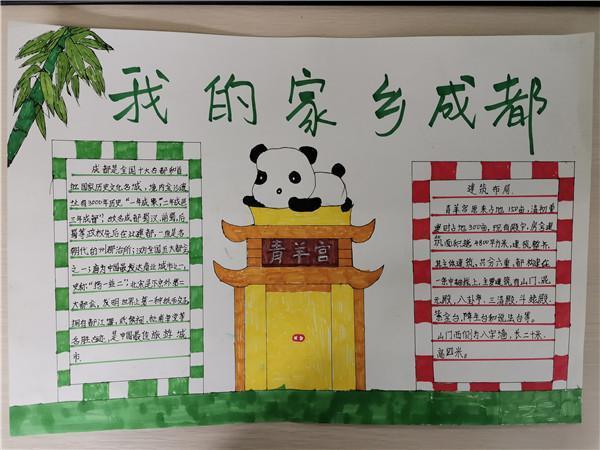 我的家乡成都
成都是全国十大古都和首
批国家历史文化名城，境内金沙遗
址有3000年历史“一年成聚，二年成邑
三年成都，”故名成都蜀汉，前蜀，后
蜀等政权先后在此建都，一直是各
朝代的州郡治所；汉为全国五大都会
之一；唐为中国最发达商业城市之一，
史称“扬一益二”北宋是汴京外第二
大都会，发明世界上第一种纸币交子
拥有都江堰，武侯祠，杜甫草堂等
名胜古迹，是中国最佳旅游城
市.
青羊宫
建筑布局
青羊宫原来占地150亩，清初重
建时占地300亩，现有殿宇，房舍建
筑面积4800平方米，建筑整齐，
其主体建筑，共分六重，都构建在
一条中轴线上，主要建筑有山门，混
元殿，八卦亭，三清殿，斗姥殿，
紫金台，降生台和说法台等。
山门西侧为八字墙，长二十米，
高四米。